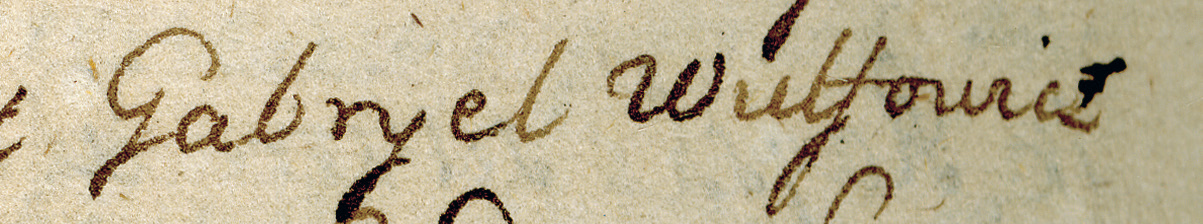 Gabryel Wulfowicz